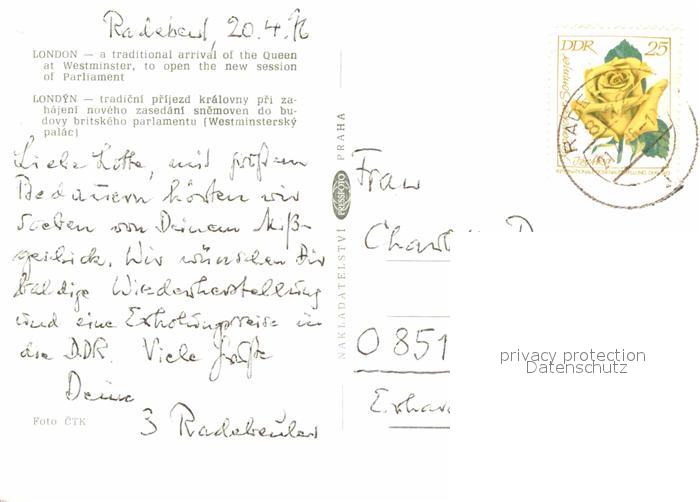 Radebeul, 20.4.76
LONDON — a traditional arrival of the Queen
at Westminster, to open the new session
of Parliament
LONDÝN — tradiční příjezd královny při za-
hájení nového zasedání sněmoven do bu-
dovy britského parlamentu (Westminsterský
palác)
Liebe Lotte, mit größtem
Bedauern hörten wir
soeben von Deinem Miß-
geschick. Wir wünschen Dir
baldige Wiederherstellung
und eine Erholungsreise in
die DDR. Viele Grüße
Deine
3 Radebeuler
Foto ČTK
NAKLADATELSTVÍ PRESSFOTO PRAHA
DDR 25
Frau
0851
privacy protection
Datenschutz